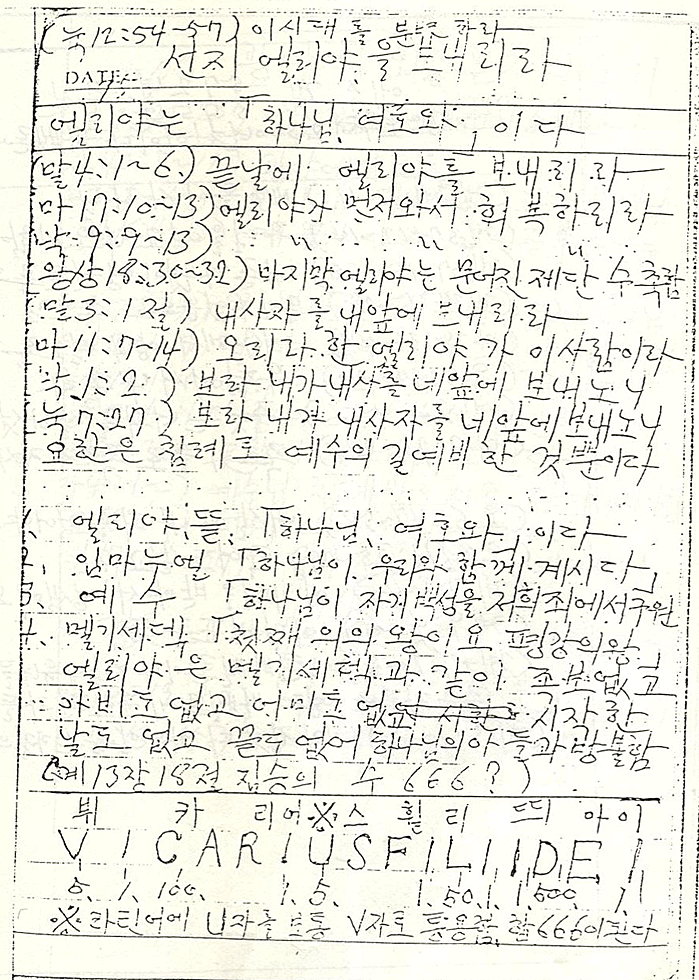 (눅12:54~57) 이시대를 분별하라
선지 엘리야을 보내리라
DATE
엘리야는 「하나님, 여호와」이다
(말4:1~6.) 끝날에 엘리야를 보내리라
마17:10~13) 엘리야가 먼저와서 회복하리라
막9:9~13) 〃 〃 〃
왕상18:30~32) 마지막 엘리야는 문어진 제단 수축함
말3:1절) 내사자를 내앞에 보내리라
마11:7~14) 오리라 한 엘리야가 이사람이라
막1:2) 보라 내가 내사를 네앞에 보내노니
(눅7:27) 보라 내가 내사자를 네앞에 보내노니
요한은 침례로 예수의 길예비 한 것뿐이다
1. 엘리야, 뜻, 「하나님, 여호와」이다
2. 임마누엘 「하나님이 우리와 함께 계시다」
3. 예수 「하나님이 자기백성을 저희죄에서구원
4. 멜기세덱 「첫째 의의 왕이요 평강의왕
엘리야은 멜기세덱과 같이 죡보없고
아비도 없고 어미도 없고 시작한
날도 없고 끝도 없어 하나님의아들과 방불함
(계13장18절 짐승의 수 666?)
뷔 카 리어※스 휠 리 띄 아이
V I C A R I U S F I L I I D E I
5. 1. 100. 1. 5. 1. 50. 1. 1. 500. 1
※ 라틴어에 U자를 보통 V자로 통용함, 합666이된다